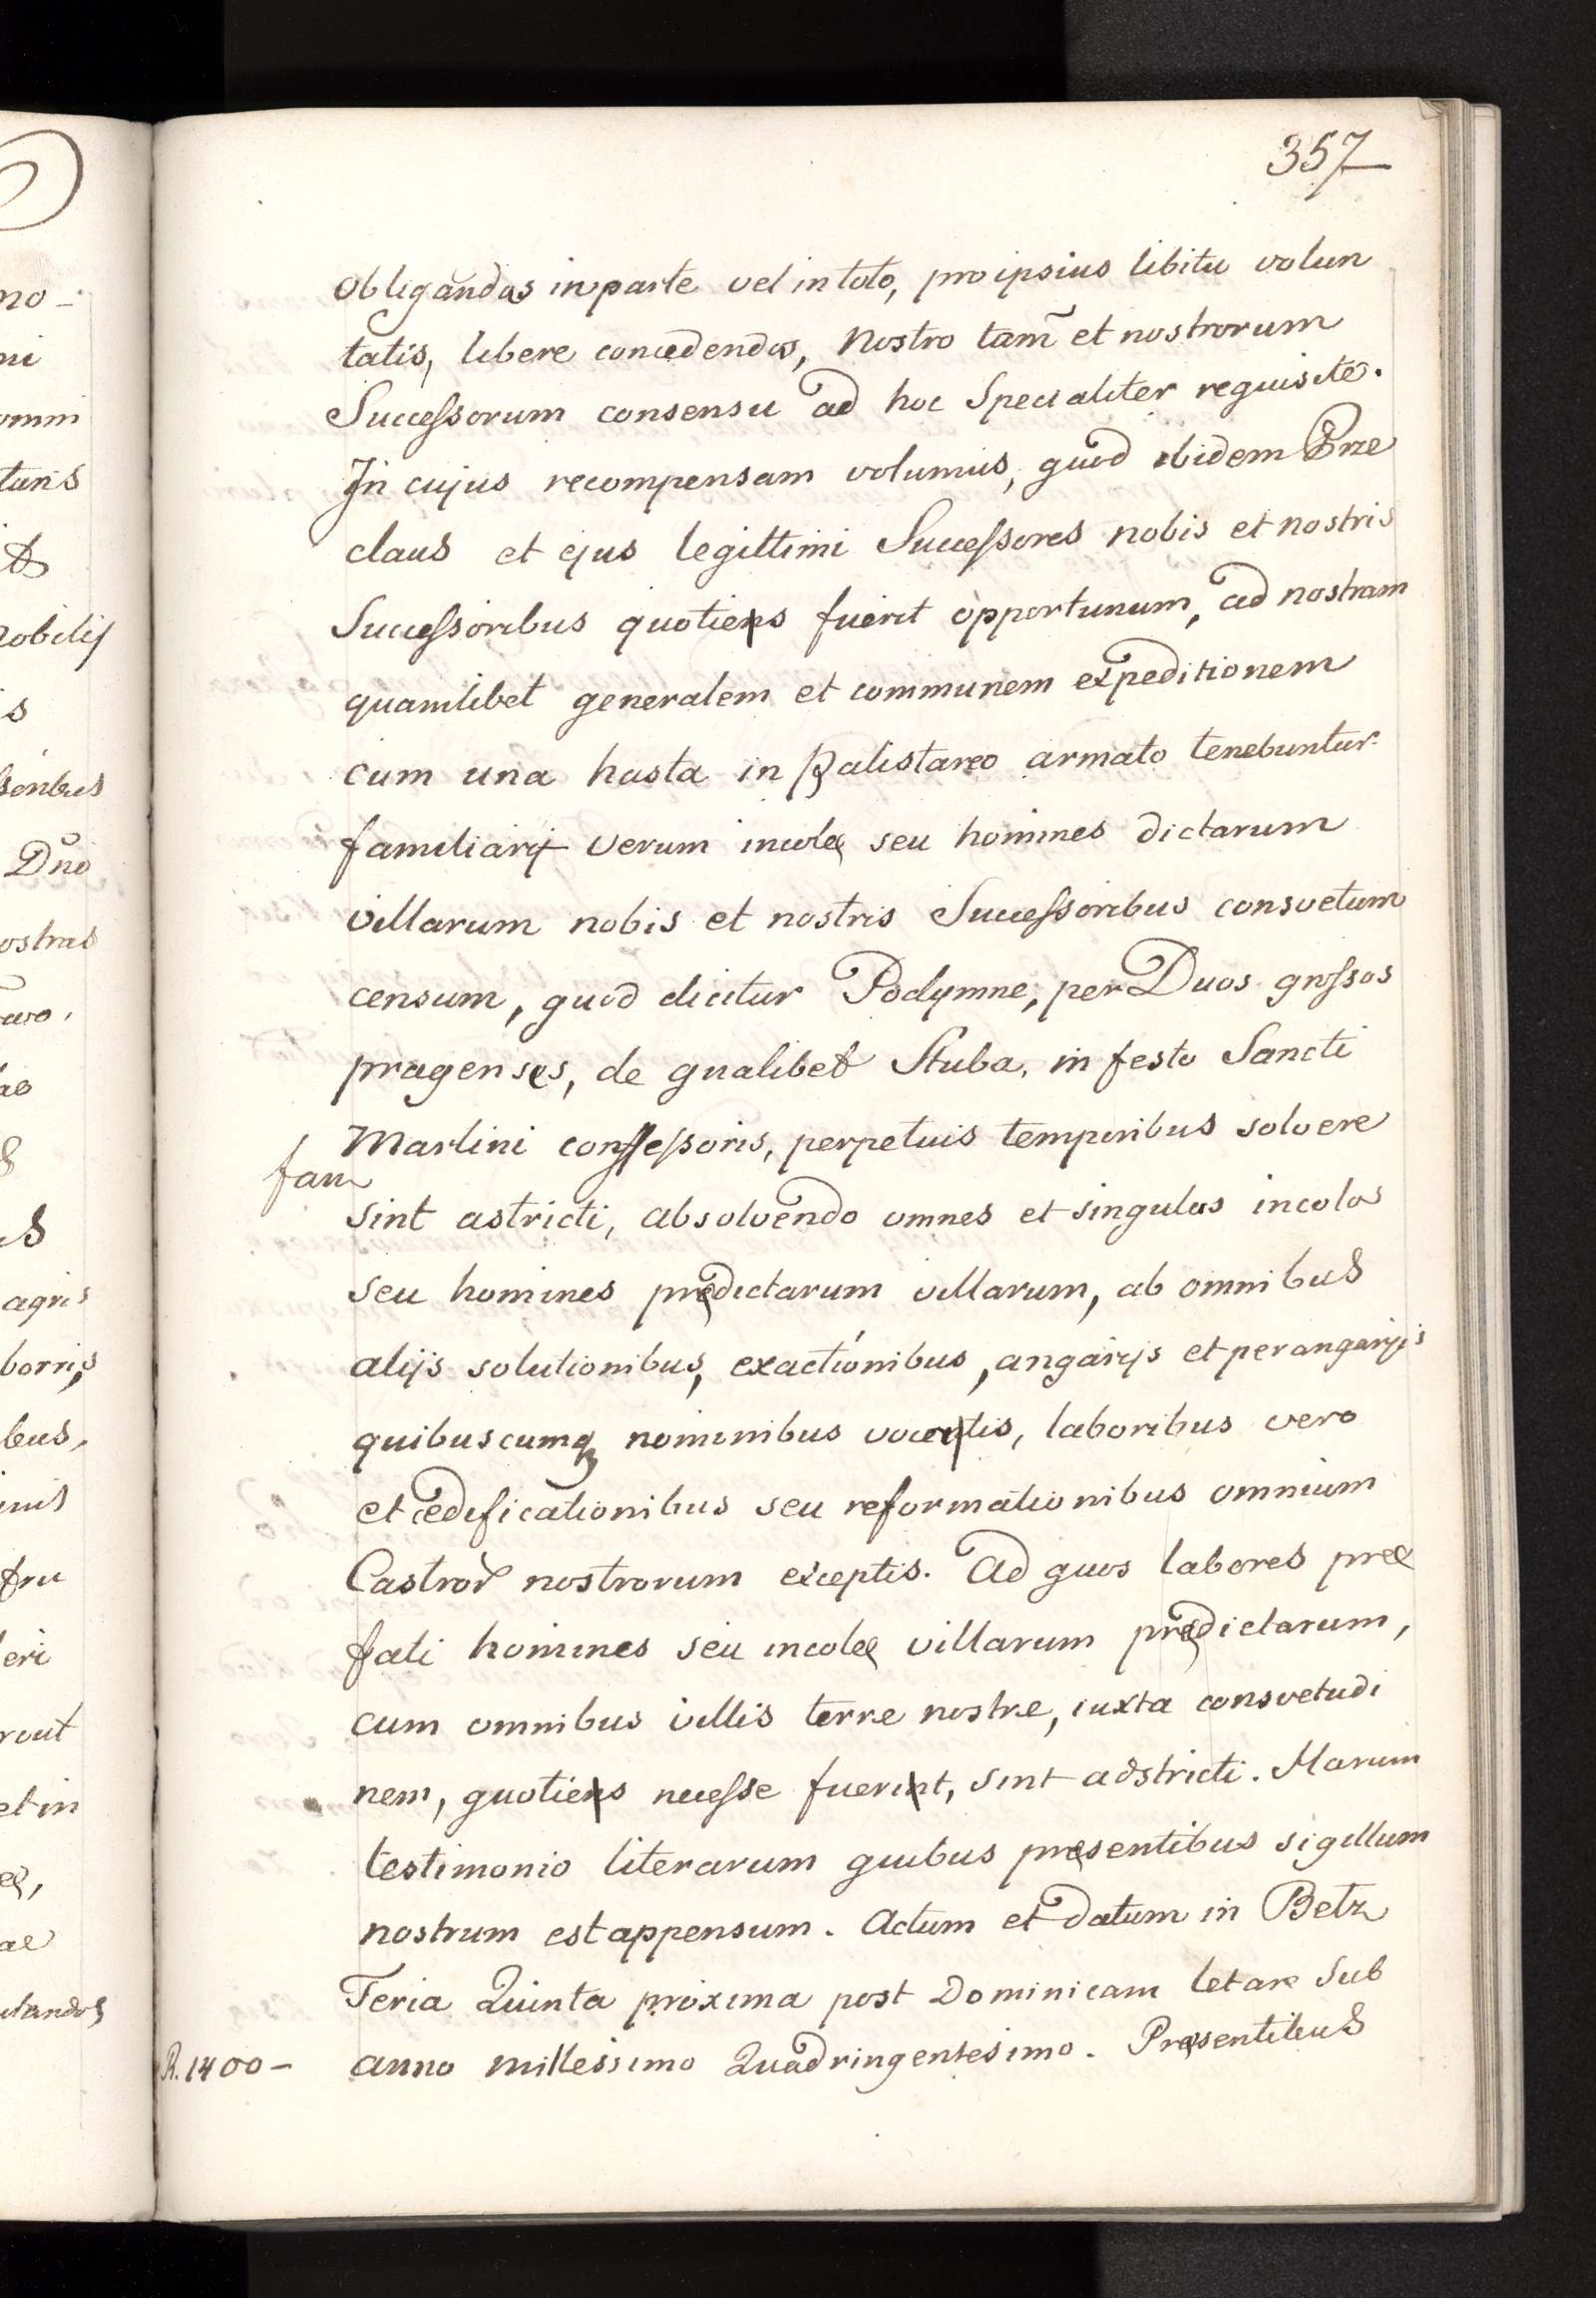 357
obligandas in parte vel in toto, pro ipsius libitu volun
tatis, libere concedendas, Nostro tam̃ et nostrorum
Successorum consensu ad hoc Specialiter requisite.
In cujus recompensam volumus, quod ibidem Prze
claus et ejus legittimi Successores nobis et nostris
Successoribus quotiens fuerit opportunum, ad nostram
quamlibet generalem et communem expeditionem
cum una hasta in Balistareo armato tenebuntur
familiarij verum incolæ seu homines dictarum
villarum nobis et nostris Successoribus consvetum
censum, quod dicitur Podymne, per Duos grossos
pragenses, de qualibet Stuba, in festo Sancti
Martini confessoris, perpetuis temporibus solvere
fam
sint astricti, absolvendo omnes et singulas incolas
seu homines prædictarum villarum, ab omnibus
alijs solutionibus, exactionibus, angarijs et perangarijs
quibuscumq nominibus vocatis, laboribus vero
et ædificationibus seu reformationibus omnium
Castror nostrorum exceptis. Ad quos labores præ
fati homines seu incolæ villarum prædictarum,
cum omnibus villis terre nostre, iuxta consvetudi
nem, quotiens necesse fuerint, sint adstricti. Harum
testimonio literarum quibus præsentibus sigillum
nostrum est appensum. Actum et Datum in Betz
Feria Quinta proxima post Dominicam letare Sub
R. 1400 - anno millessimo Quadringentesimo. Præsentibus